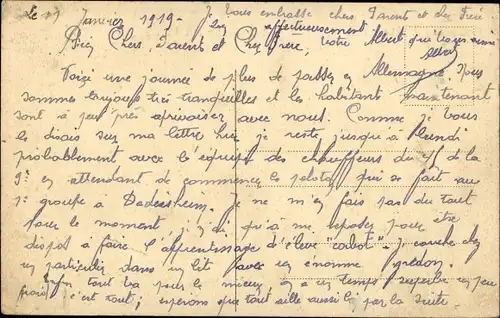 Le 19 Janvier 1919 - Je vous embrasse chers Parent et cher Frère
bien affectueusement votre Albert qui vous aime
Bien Chers Parent et Cher Frère, Albert
Voici une journée de plus de passer en Allemagne, Nous
sommes toujours très tranquilles et les habitant maintenant
sont à peu près aprivoiser avec nous. Comme je vous
le disais sur ma lettre hier je reste jusqu'à Lundi
probablement avec l'équipe des chauffeurs du de la
9e en attendant de commencer le peloton qui se fait au
1er groupe à Je ne m'en fais pas du tout
pour le moment j'ai qu'à me reposer pour être
dispos à faire l'apprentissage d'élève "cabot" - je couche chez
un particulier dans un lit avec un énorme
Enfin tout va pour le mieux, on a un temps superbe un peu
froid c'est tout; espérons que tout aille aussi par la suite.